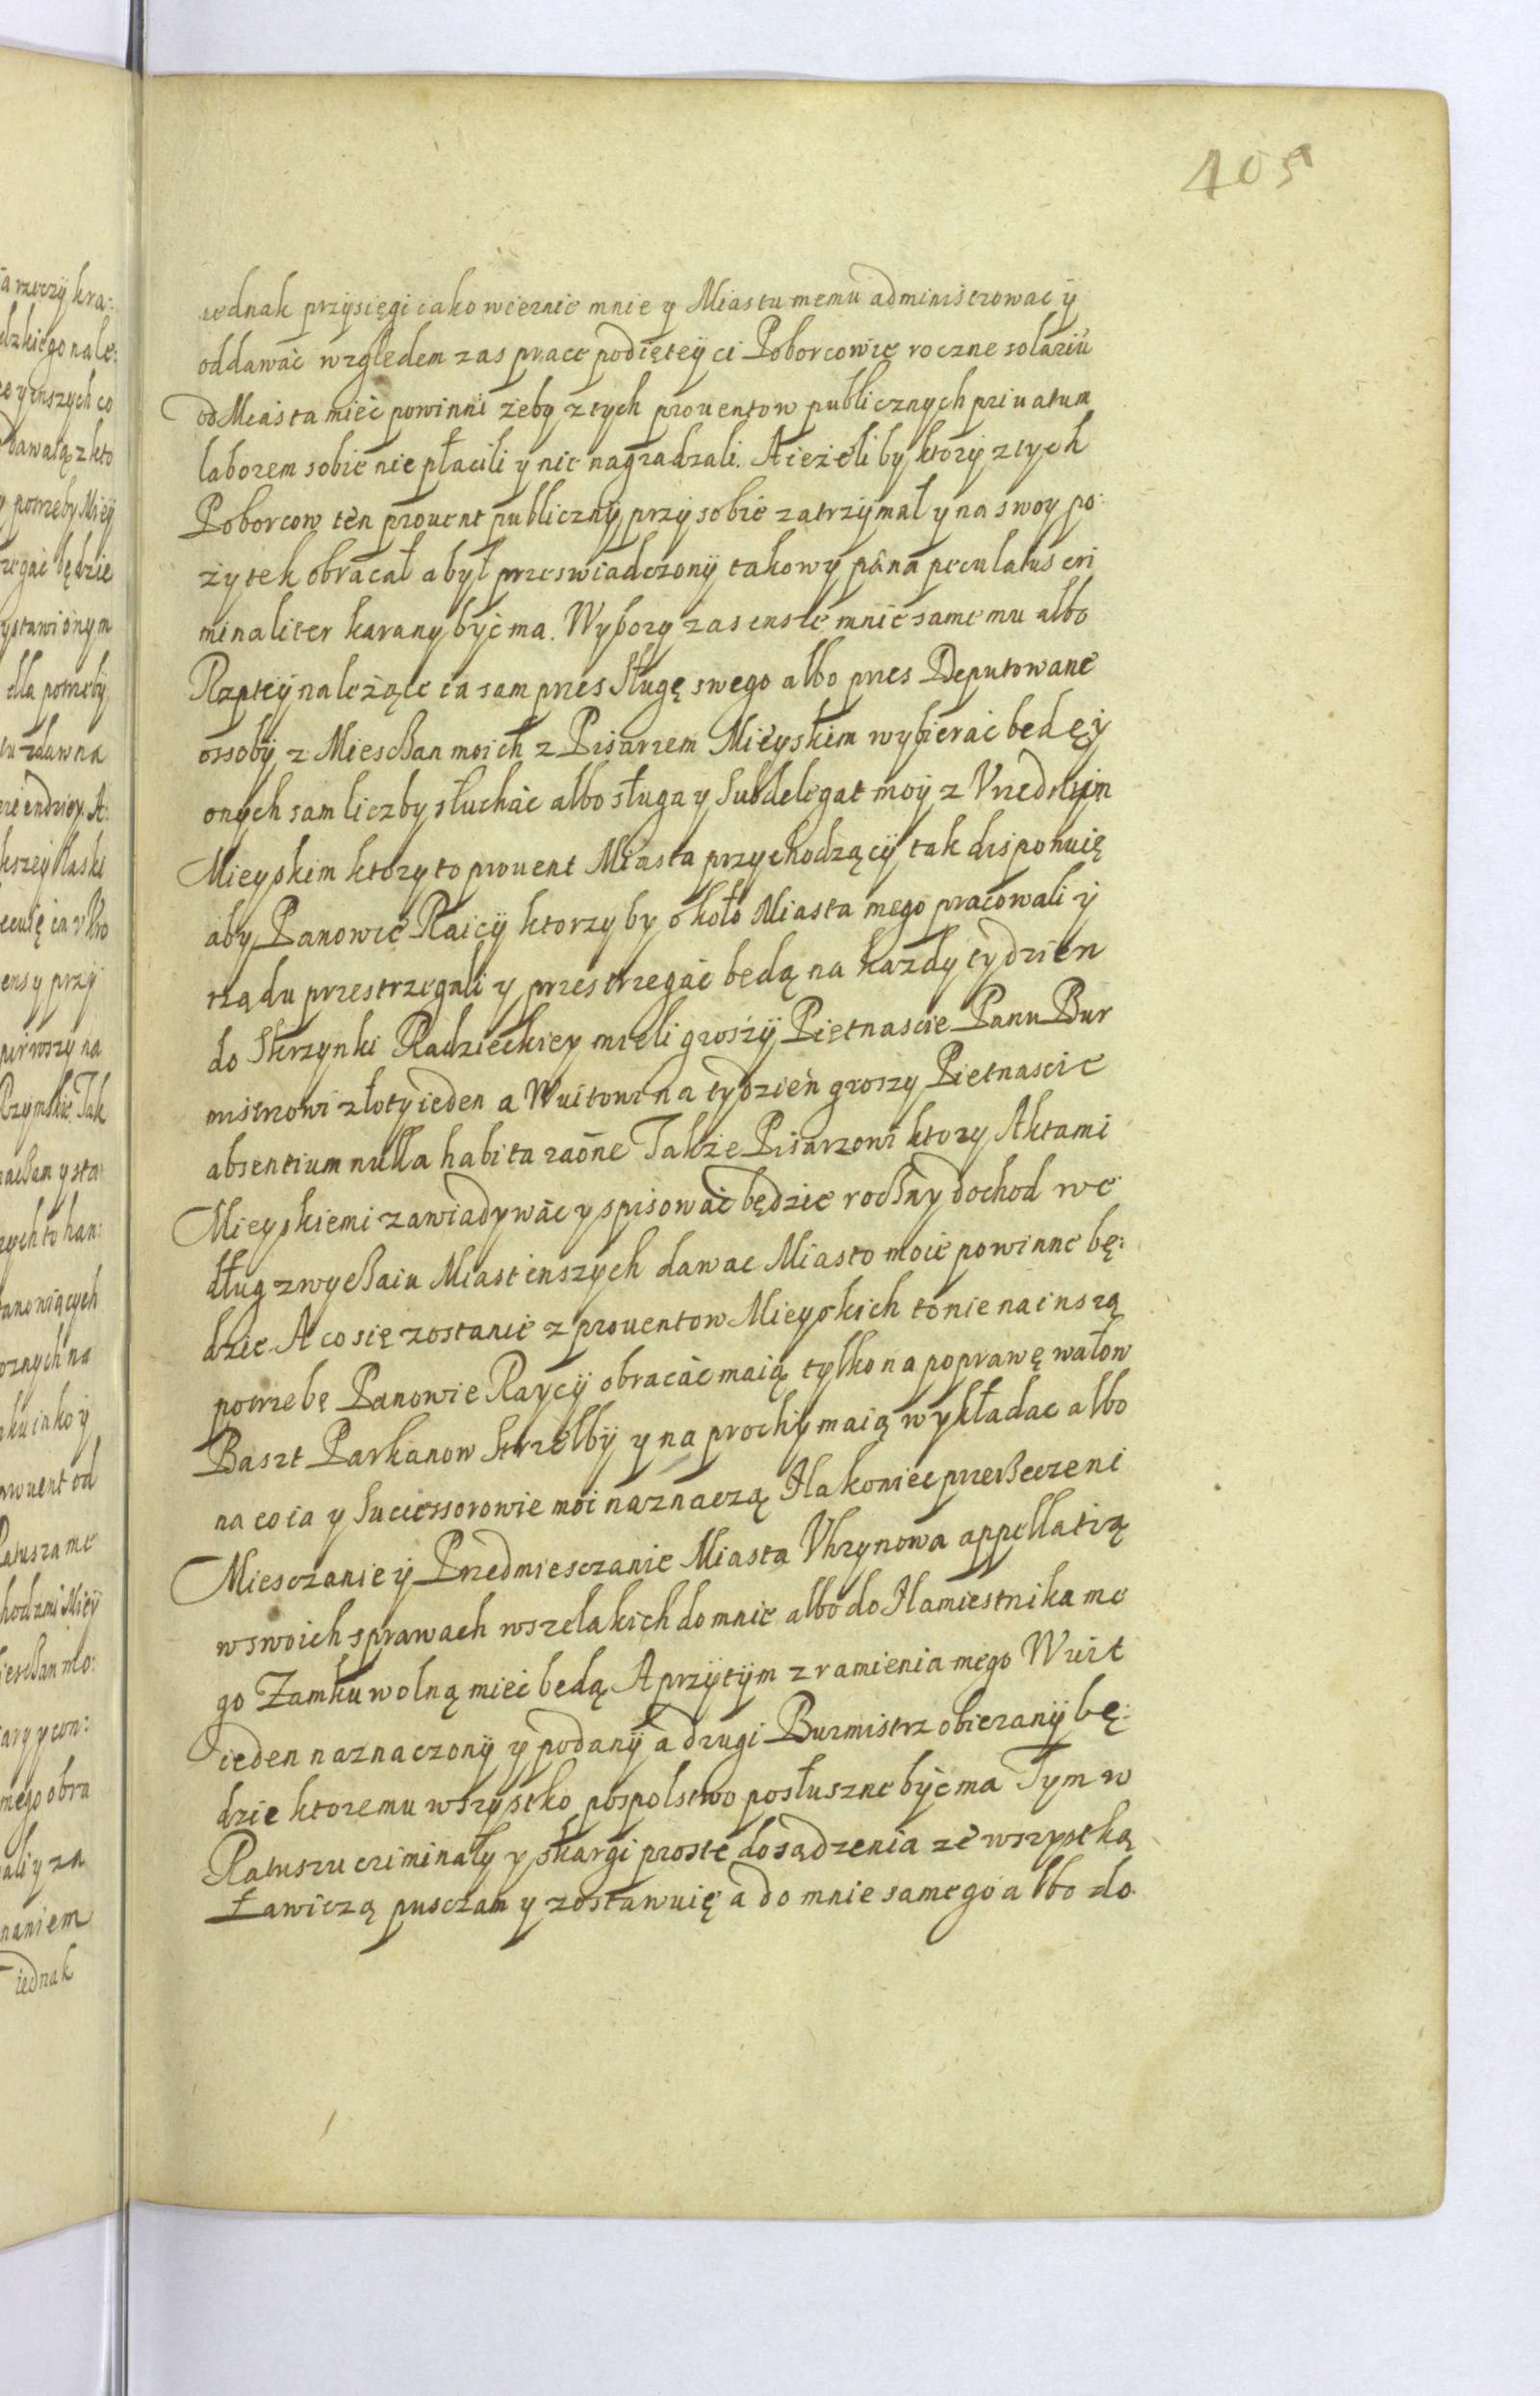 405
iednak przysięgi iako wiernie mnie y Miastu memu administrowac ÿ
oddawać względem zas prace podiętey ci Poborcowie roczne solariū
od Miasta mieć powinni żeby z tych prouentow publicznych priuatum
laborem sobie nie płacili y nie nagradzali. A ieżeliby ktory z tych
Poborcow ten prouent publiczny przy sobie zatrzymał y na swoy po:
żytek obracał a był przeswiadczony takowy pæna peculatus cri
minaliter karany być ma. Wybory zas insze mnie samemu albo
Rzptey należące ia sam przes Sługę swego albo przes Deputowane
ossoby z Miesczan moich z Pisarzem Mieyskim wybierać będę ÿ
onych sam liczby słuchać albo sługa y Subdelegat moy z Vrzędnym
Mieyskim ktory to prouent Miasta przychodzący tak disponuię
aby Panowie Raicy ktorzyby około Miasta mego pracowali ÿ
rządu przestrzegali y przestrzegać będą na każdy tydzien
do Skrzynki Radzieckiey mieli groszy Piętnascie Panu Bur
mistrzowi złoty ieden a Wuitowi na tydzień groszy Pietnascie
absentium nulla habita raõne Także Pisarzowi ktory Aktami
Mieyskiemi zawiadywać y spisować będzie roczny dochod we
dług zwyczaiu Miast inszych dawac Miasto moie powinne bę:
dzie A co się zostanie z prouentow Mieyskich to nie na inszą
potrzebę Panowie Raycy obracać maią tylko na poprawę wałow
Baszt Parkanow Strzelby y na prochy maią wykładac albo
na co ia y Successorowie moi naznaczą Nakoniec przerzeczeni
Miesczanie ÿ Przedmiesczanie Miasta Vhrynowa appellatią
w swoich sprawach wszelakich do mnie albo do Namiestnika me
go Zamku wolną mieć będą A przytym z ramienia mego Wuit
ieden naznaczony y podany a drugi Burmistrz obierany bę:
dzie ktoremu wszystko pospolstwo posłuszne być ma Tym w
Ratuszu criminały y skargi proste do sądzenia ze wszystką
Ławiczą pusczam y zostawuię a do mnie samego albo do